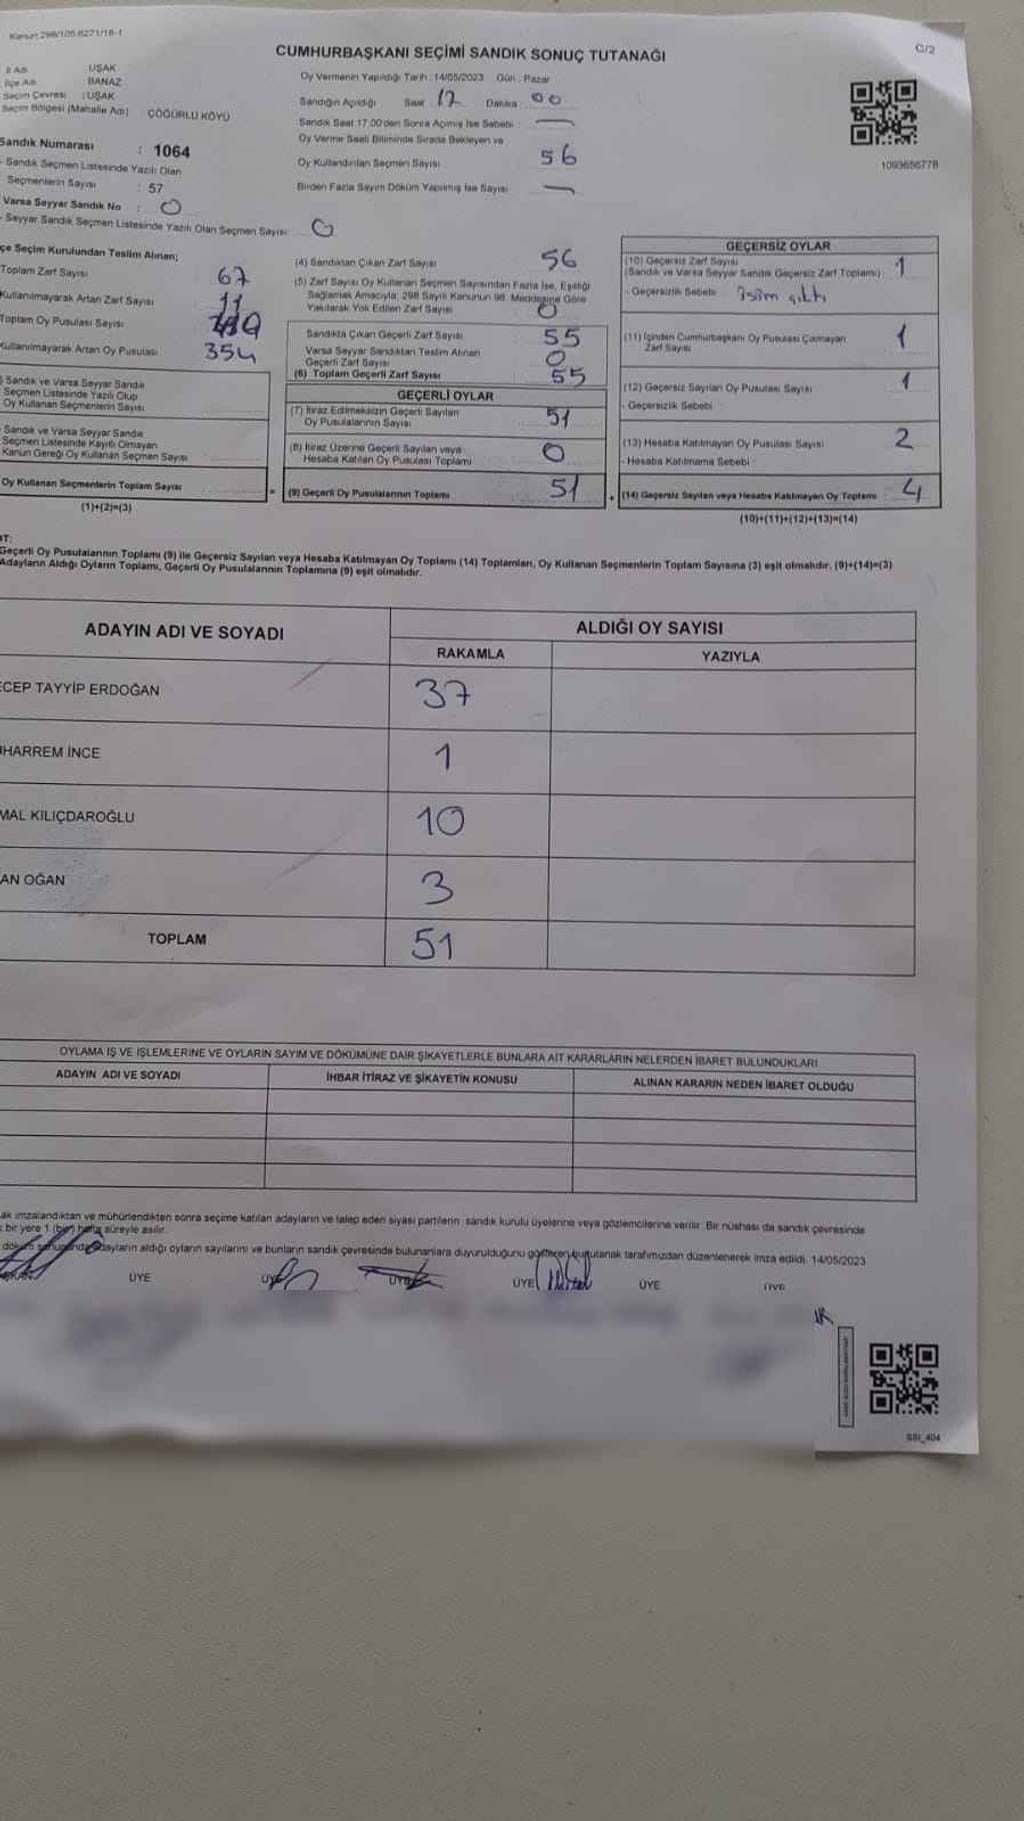 Kanun: 298/105 6271/18-1
C/2
CUMHURBAŞKANI SEÇİMİ SANDIK SONUÇ TUTANAĞI
İl Adı : UŞAK
İlçe Adı : BANAZ
Seçim Çevresi : UŞAK
Seçim Bölgesi (Mahalle Adı) ÇÖĞÜRLÜ KÖYÜ
Sandık Numarası : 1064
Sandık Seçmen Listesinde Yazılı Olan
Seçmenlerin Sayısı : 57
Varsa Seyyar Sandık No : 0
- Seyyar Sandık Seçmen Listesinde Yazılı Olan Seçmen Sayısı: 0
Oy Vermenin Yapıldığı Tarih : 14/05/2023 Gün : Pazar
Sandığın Açıldığı Saat 17 Dakika 00
Sandık Saat 17.00'den Sonra Açılmış İse Sebebi : —
Oy Verme Saati Bitiminde Sırada Bekleyen ve
Oy Kullandırılan Seçmen Sayısı 56
Birden Fazla Sayım Döküm Yapılmış İse Sayısı —
1093656778
çe Seçim Kurulundan Teslim Alınan;
Toplam Zarf Sayısı 67
Kullanılmayarak Artan Zarf Sayısı 11
Toplam Oy Pusulası Sayısı
Kullanılmayarak Artan Oy Pusulası 354
Sandık ve Varsa Seyyar Sandık
Seçmen Listesinde Yazılı Olup
Oy Kullanan Seçmenlerin Sayısı
Sandık ve Varsa Seyyar Sandık
Seçmen Listesinde Kayıtlı Olmayan
Kanun Gereği Oy Kullanan Seçmen Sayısı
Oy Kullanan Seçmenlerin Toplam Sayısı
(1)+(2)=(3)
(4) Sandıktan Çıkan Zarf Sayısı 56
(5) Zarf Sayısı Oy Kullanan Seçmen Sayısından Fazla İse, Eşitliği
Sağlamak Amacıyla, 298 Sayılı Kanunun 98. Maddesine Göre
Yakılarak Yok Edilen Zarf Sayısı 0
Sandıkta Çıkan Geçerli Zarf Sayısı 55
Varsa Seyyar Sandıktan Teslim Alınan
Geçerli Zarf Sayısı 0
(6) Toplam Geçerli Zarf Sayısı 55
GEÇERLİ OYLAR
(7) İtiraz Edilmeksizin Geçerli Sayılan
Oy Pusulalarının Sayısı 51
(8) İtiraz Üzerine Geçerli Sayılan veya
Hesaba Katılan Oy Pusulası Toplamı 0
= (9) Geçerli Oy Pusulalarının Toplamı 51
GEÇERSİZ OYLAR
(10) Geçersiz Zarf Sayısı
(Sandık ve Varsa Seyyar Sandık Geçersiz Zarf Toplamı) 1
- Geçersizlik Sebebi isim çıktı
(11) İçinden Cumhurbaşkanı Oy Pusulası Çıkmayan
Zarf Sayısı 1
(12) Geçersiz Sayılan Oy Pusulası Sayısı 1
- Geçersizlik Sebebi
(13) Hesaba Katılmayan Oy Pusulası Sayısı 2
- Hesaba Katılmama Sebebi :
+ (14) Geçersiz Sayılan veya Hesaba Katılmayan Oy Toplamı : 4
(10)+(11)+(12)+(13)=(14)
OT:
Geçerli Oy Pusulalarının Toplamı (9) ile Geçersiz Sayılan veya Hesaba Katılmayan Oy Toplamı (14) Toplamları, Oy Kullanan Seçmenlerin Toplam Sayısına (3) eşit olmalıdır. (9)+(14)=(3)
Adayların Aldığı Oyların Toplamı, Geçerli Oy Pusulalarının Toplamına (9) eşit olmalıdır.
ADAYIN ADI VE SOYADI
ALDIĞI OY SAYISI
RAKAMLA YAZIYLA
ECEP TAYYİP ERDOĞAN 37
UHARREM İNCE 1
MAL KILIÇDAROĞLU 10
AN OĞAN 3
TOPLAM 51
OYLAMA İŞ VE İŞLEMLERİNE VE OYLARIN SAYIM VE DÖKÜMÜNE DAİR ŞİKAYETLERLE BUNLARA AİT KARARLARIN NELERDEN İBARET BULUNDUKLARI
ADAYIN ADI VE SOYADI İHBAR İTİRAZ VE ŞİKAYETİN KONUSU ALINAN KARARIN NEDEN İBARET OLDUĞU
ak imzalandıktan ve mühürlendikten sonra seçime katılan adayların ve talep eden siyasi partilerin sandık kurulu üyelerine veya gözlemcilerine verilir. Bir nüshası da sandık çevresinde
bir yere 1 (bir) hafta süreyle asılır.
döküm sonucunda adayların aldığı oyların sayılarını ve bunların sandık çevresinde bulunanlara duyurulduğunu gösteren bu tutanak tarafımızdan düzenlenerek imza edildi. 14/05/2023
ÜYE ÜYE ÜYE ÜYE ÜYE ÜYE
SSI_404